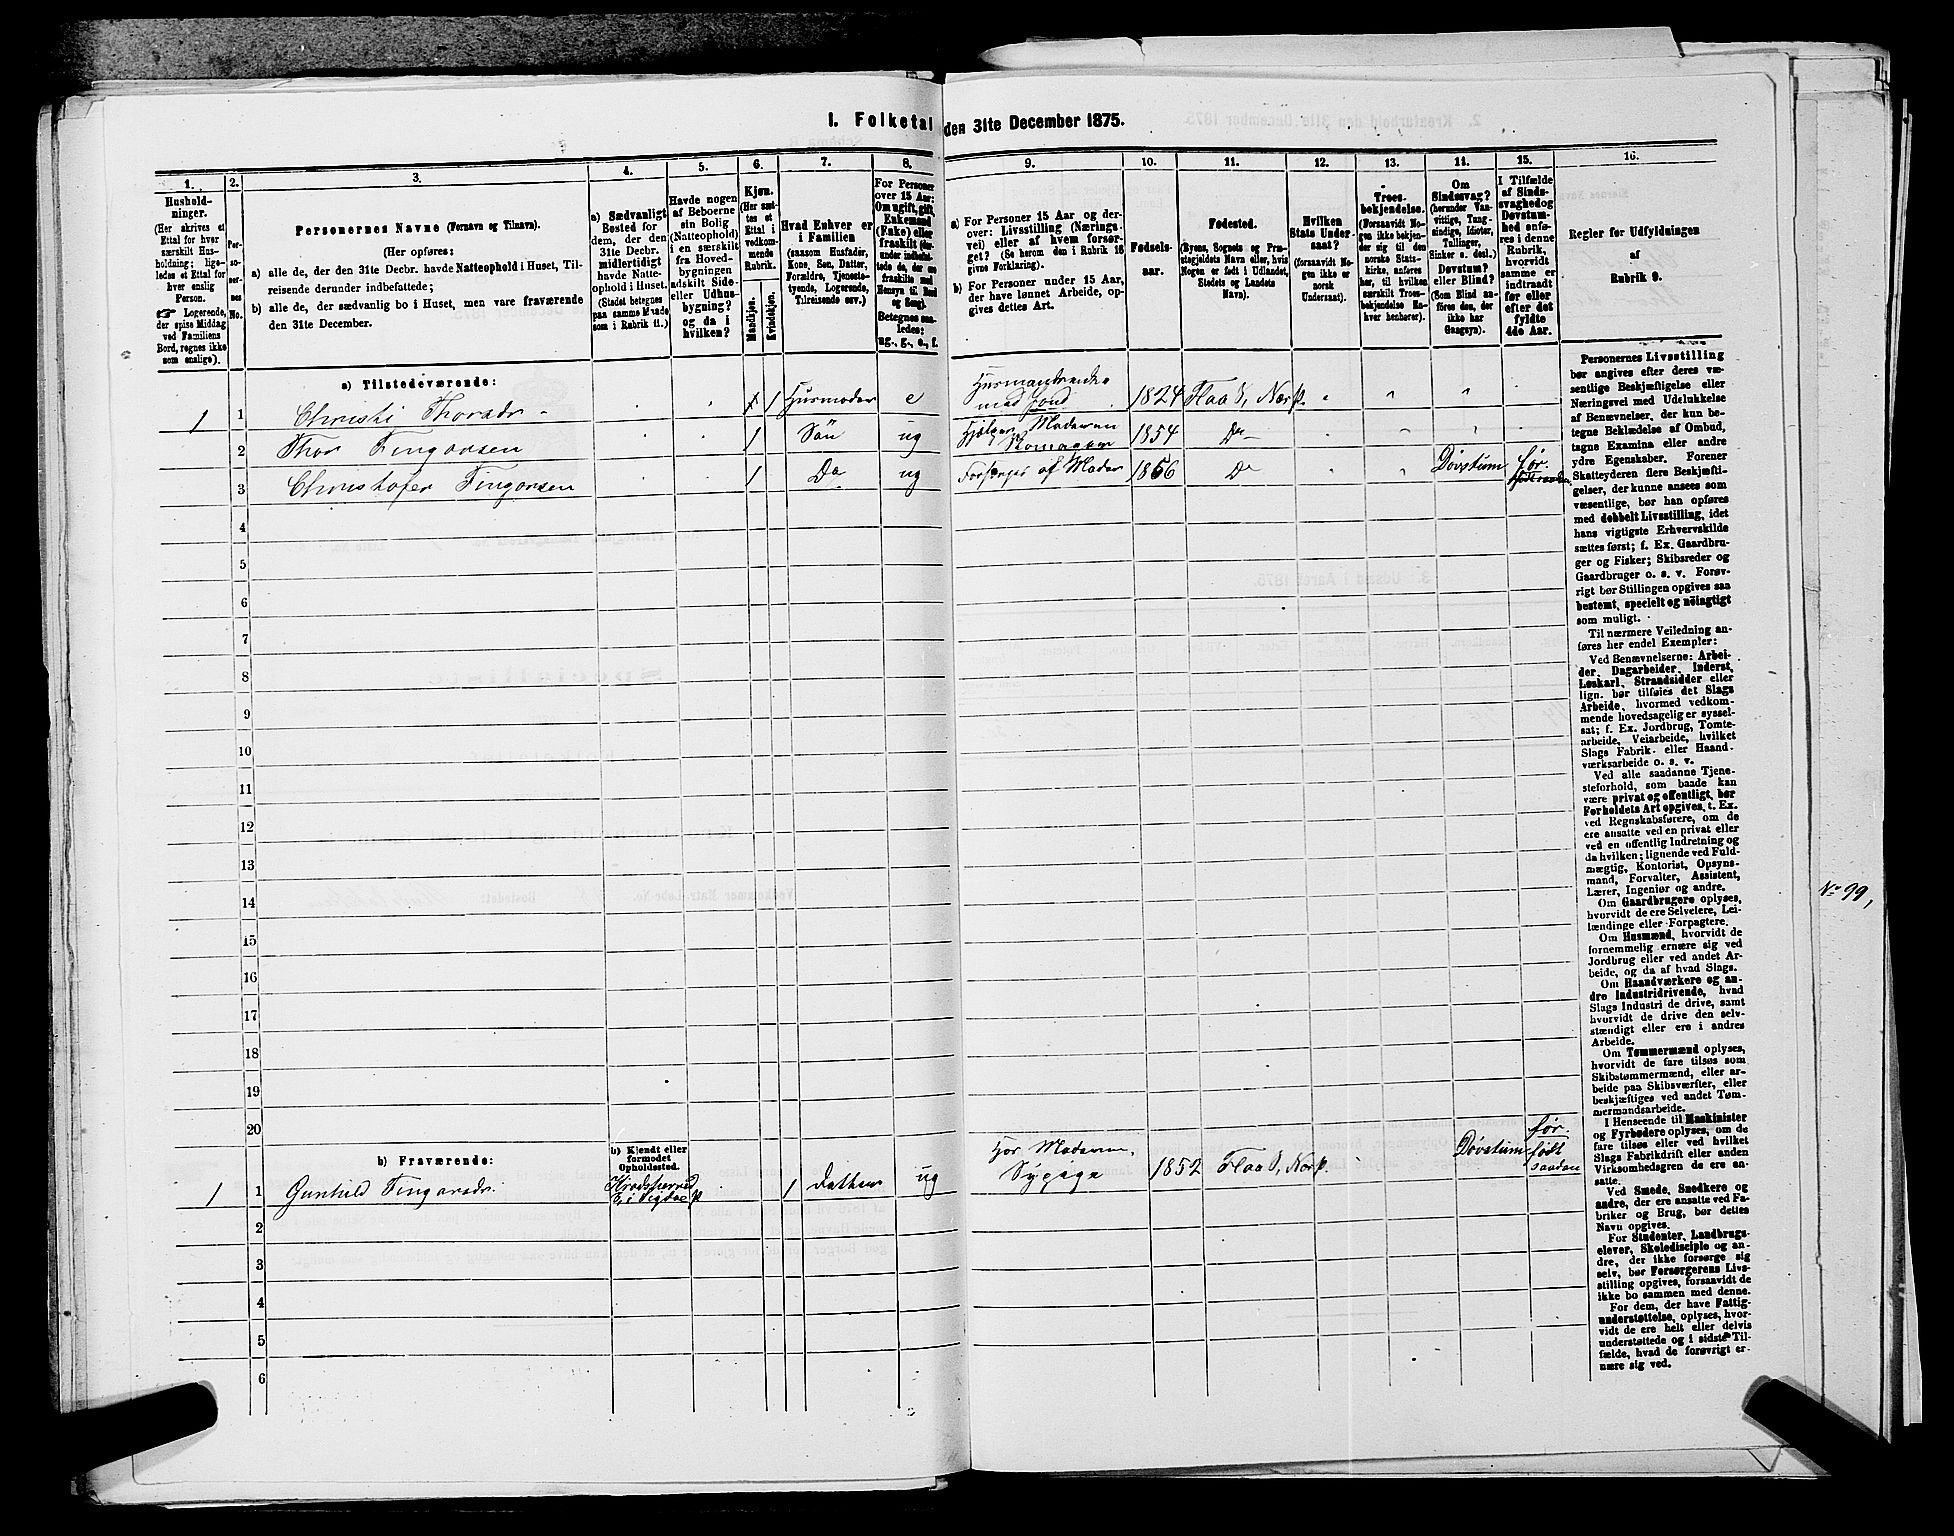 1. Folketal den 31te December 1875.
1.
Hushold-
ninger.
(Her skrives et
Ettal for hver
særskilt Hus-
holdning; lige-
ledes et Ettal for
hver enslig
Person.
Logerende,
der spise Middag
ved Familiens
Bord, regnes ikke
som enslige).
2.
Per-
so-
ner-
nes
No.
3.
Personernes Navne (Fornavn og Tilnavn).
(Her opføres:
a) alle de, der den 31te Decbr. havde Natteophold i Huset, Til-
reisende derunder indbefattede;
b) alle de, der sædvanlig bo i Huset, men vare fraværende
den 31te December.
4.
a) Sædvanligt
Bosted for
dem, der den
31te Decbr.
midlertidigt
havde Natte-
ophold i Huset.
(Stedet betegnes
paa samme Maade
som i Rubrik 11.)
5.
Havde nogen
af Beboerne
sin Bolig
(Natteophold)
i en særskilt
fra Hoved-
bygningen
adskilt Side-
eller Udhus-
bygning?
og da i
hvilken?
6.
Kjøn.
(Her sæt-
tes et
Ettal i
vedkom-
mende
Rubrik.
Mandkjøn.
Kvindekjøn.
7.
Hvad Enhver er
i Familien
(saasom Husfader,
Kone, Søn, Datter,
Forældre, Tjeneste-
tyende, Logerende,
Tilreisende osv.)
8.
For Personer
over 15 Aar:
Om ugift, gift,
Enkemand
(Enke) eller
fraskilt (der-
under indbefat-
tede de, der ere
fraskilte med
Hensyn til Bord
og Seng).
Betegnes saa-
ledes:
ug., g., e., f.
9.
a) For Personer 15 Aar og der-
over: Livsstilling (Nærings-
vei) eller af hvem forsør-
get? (Se herom den i Rubrik 16
givne Forklaring).
b) For Personer under 15 Aar,
der have lønnet Arbeide, op-
gives dettes Art.
10.
Fødsels-
aar.
11.
Fødested.
(Byens, Sognets og Præ-
stegjeldets Navn eller, hvis
Nogen er født i Udlandet,
Stedets og Landets
Navn).
12.
Hvilken
Stats Under-
saat?
(forsaavidt No-
gen ikke er
norsk
Undersaat).
13.
Troes-
bekjendelse.
(Forsaavidt No-
gen ikke bekjen-
der sig til den
norske Stats-
kirke, anføres
her, til hvilken
særskilt Troes-
bekjendelse En-
hver henhører).
14.
Om
Sindssvag?
(herunder Van-
vittige, Tung-
sindige, Idioter,
Tullinger,
Sinker o. desl.)
Døvstum?
eller Blind?
(Som Blind an-
føres den, der
ikke har
Gangsyn).
15.
I Tilfælde
af Sinds-
svaghed og
Døvstum-
hed anfø-
res i denne
Rubrik,
hvorvidt
samme er
indtraadt
før eller
efter det
fyldte
4de Aar.
16.
Regler for Udfyldningen
af
Rubrik 9.
a) Tilstedeværende:
1 1 Christi Thorsdr 1 Husmoder e Husmandsenke med Jord 1824 Flaa S, Nesp.
2 Thor Fingarsen 1 Søn ug Hjelper Moderen 1854 Do
3 Christofer Fingarsen 1 Do ug Forsørges af Moder 1856 Do Døvstum før.
4
5
6
7
8
9
10
11
12
13
14
15
16
17
18
19
20
b) Fraværende:
b) Kjendt eller
formodet
Opholdssted.
1 1 Gunhild Fingarsdr. Krødsherred S. i Sigdal p 1 Datter ug Hos Moderen, Sypige 1852 Flaa S, Nesp. Døvstum før. født saadan
2
3
4
5
6
Personernes Livsstilling
bør angives efter deres væ-
sentlige Beskjæftigelse eller
Næringsvei med Udelukkelse
af Benævnelser, der kun be-
tegne Beklædelse af Ombud,
tagne Examina eller andre
ydre Egenskaber. Forener
Skatteyderen flere Beskjæfti-
gelser, der kunne ansees som
væsentlige, bør han opføres
med dobbelt Livsstilling, idet
hans vigtigste Erhvervskilde
sættes først; f. Ex. Gaardbru-
ger og Fisker; Skibsreder og
Gaardbruger o. s. v. Forøv-
rigt bør Stillingen opgives saa
bestemt, specielt og nøiagtigt
som muligt.
Til nærmere Veiledning an-
føres her endel Exempler:
Ved Benævnelserne: Arbei-
der, Dagarbeider, Inderst,
Løskarl, Strandsidder eller
lign. bør tilføies det Slags
Arbeide, hvormed vedkom-
mende hovedsagelig er syssel-
sat; f. Ex. Jordbrug, Tomte-
arbeide, Veiarbeide, hvilket
Slags Fabrik- eller Haand-
værksarbeide o. s. v.
Ved alle saadanne Tjene-
steforhold, som baade kan
være privat og offentligt, bør
Forholdets Art opgives, t. Ex.
ved Regnskabsførere, om de
ere ansatte ved en privat eller
ved en offentlig Indretning og
da hvilken; lignende ved Fuld-
mægtig, Kontorist, Opsyns-
mand, Forvalter, Assistent,
Lærer, Ingeniør og andre.
Om Gaardbrugere oplyses,
hvorvidt de ere Selveiere, Lei-
lændinge eller Forpagtere.
Om Husmænd, hvorvidt de
fornemmelig ernære sig ved
Jordbrug eller ved andet Ar-
beide, og da af hvad Slags.
Om Haandværkere og an-
dre Industridrivende, hvad
Slags Industri de drive, samt
hvorvidt de drive den selv-
stændigt eller ere i andres
Arbeide.
Om Tømmermænd oplyses,
hvorvidt de fare tilsøs som
Skibstømmermænd, eller ar-
beide paa Skibsværfter, eller
beskjæftiges ved andet Tøm-
mermandsarbeide.
I Henseende til Maskinister
og Fyrbødere oplyses, om de
fare tilsøs eller ved hvilket
Slags Fabrikdrift eller anden
Virksomhedsgren de ere an-
satte.
Ved Smede, Snedkere og
andre, der ere ansatte ved Fa-
briker og Brug, bør dettes
Navn opgives.
For Studenter, Landbrugs-
elever, Skoledisciple og an-
dre, der ikke forsørge sig
selv, bør Forsørgerens Livs-
stilling opgives, forsaavidt de
ikke bo sammen med denne.
For dem, der have Fattig-
understøttelse, oplyses, hvor-
vidt de ere helt eller delvis
understøttede og i sidste Til-
fælde, hvad de forøvrigt er-
nære sig ved.
No 99,